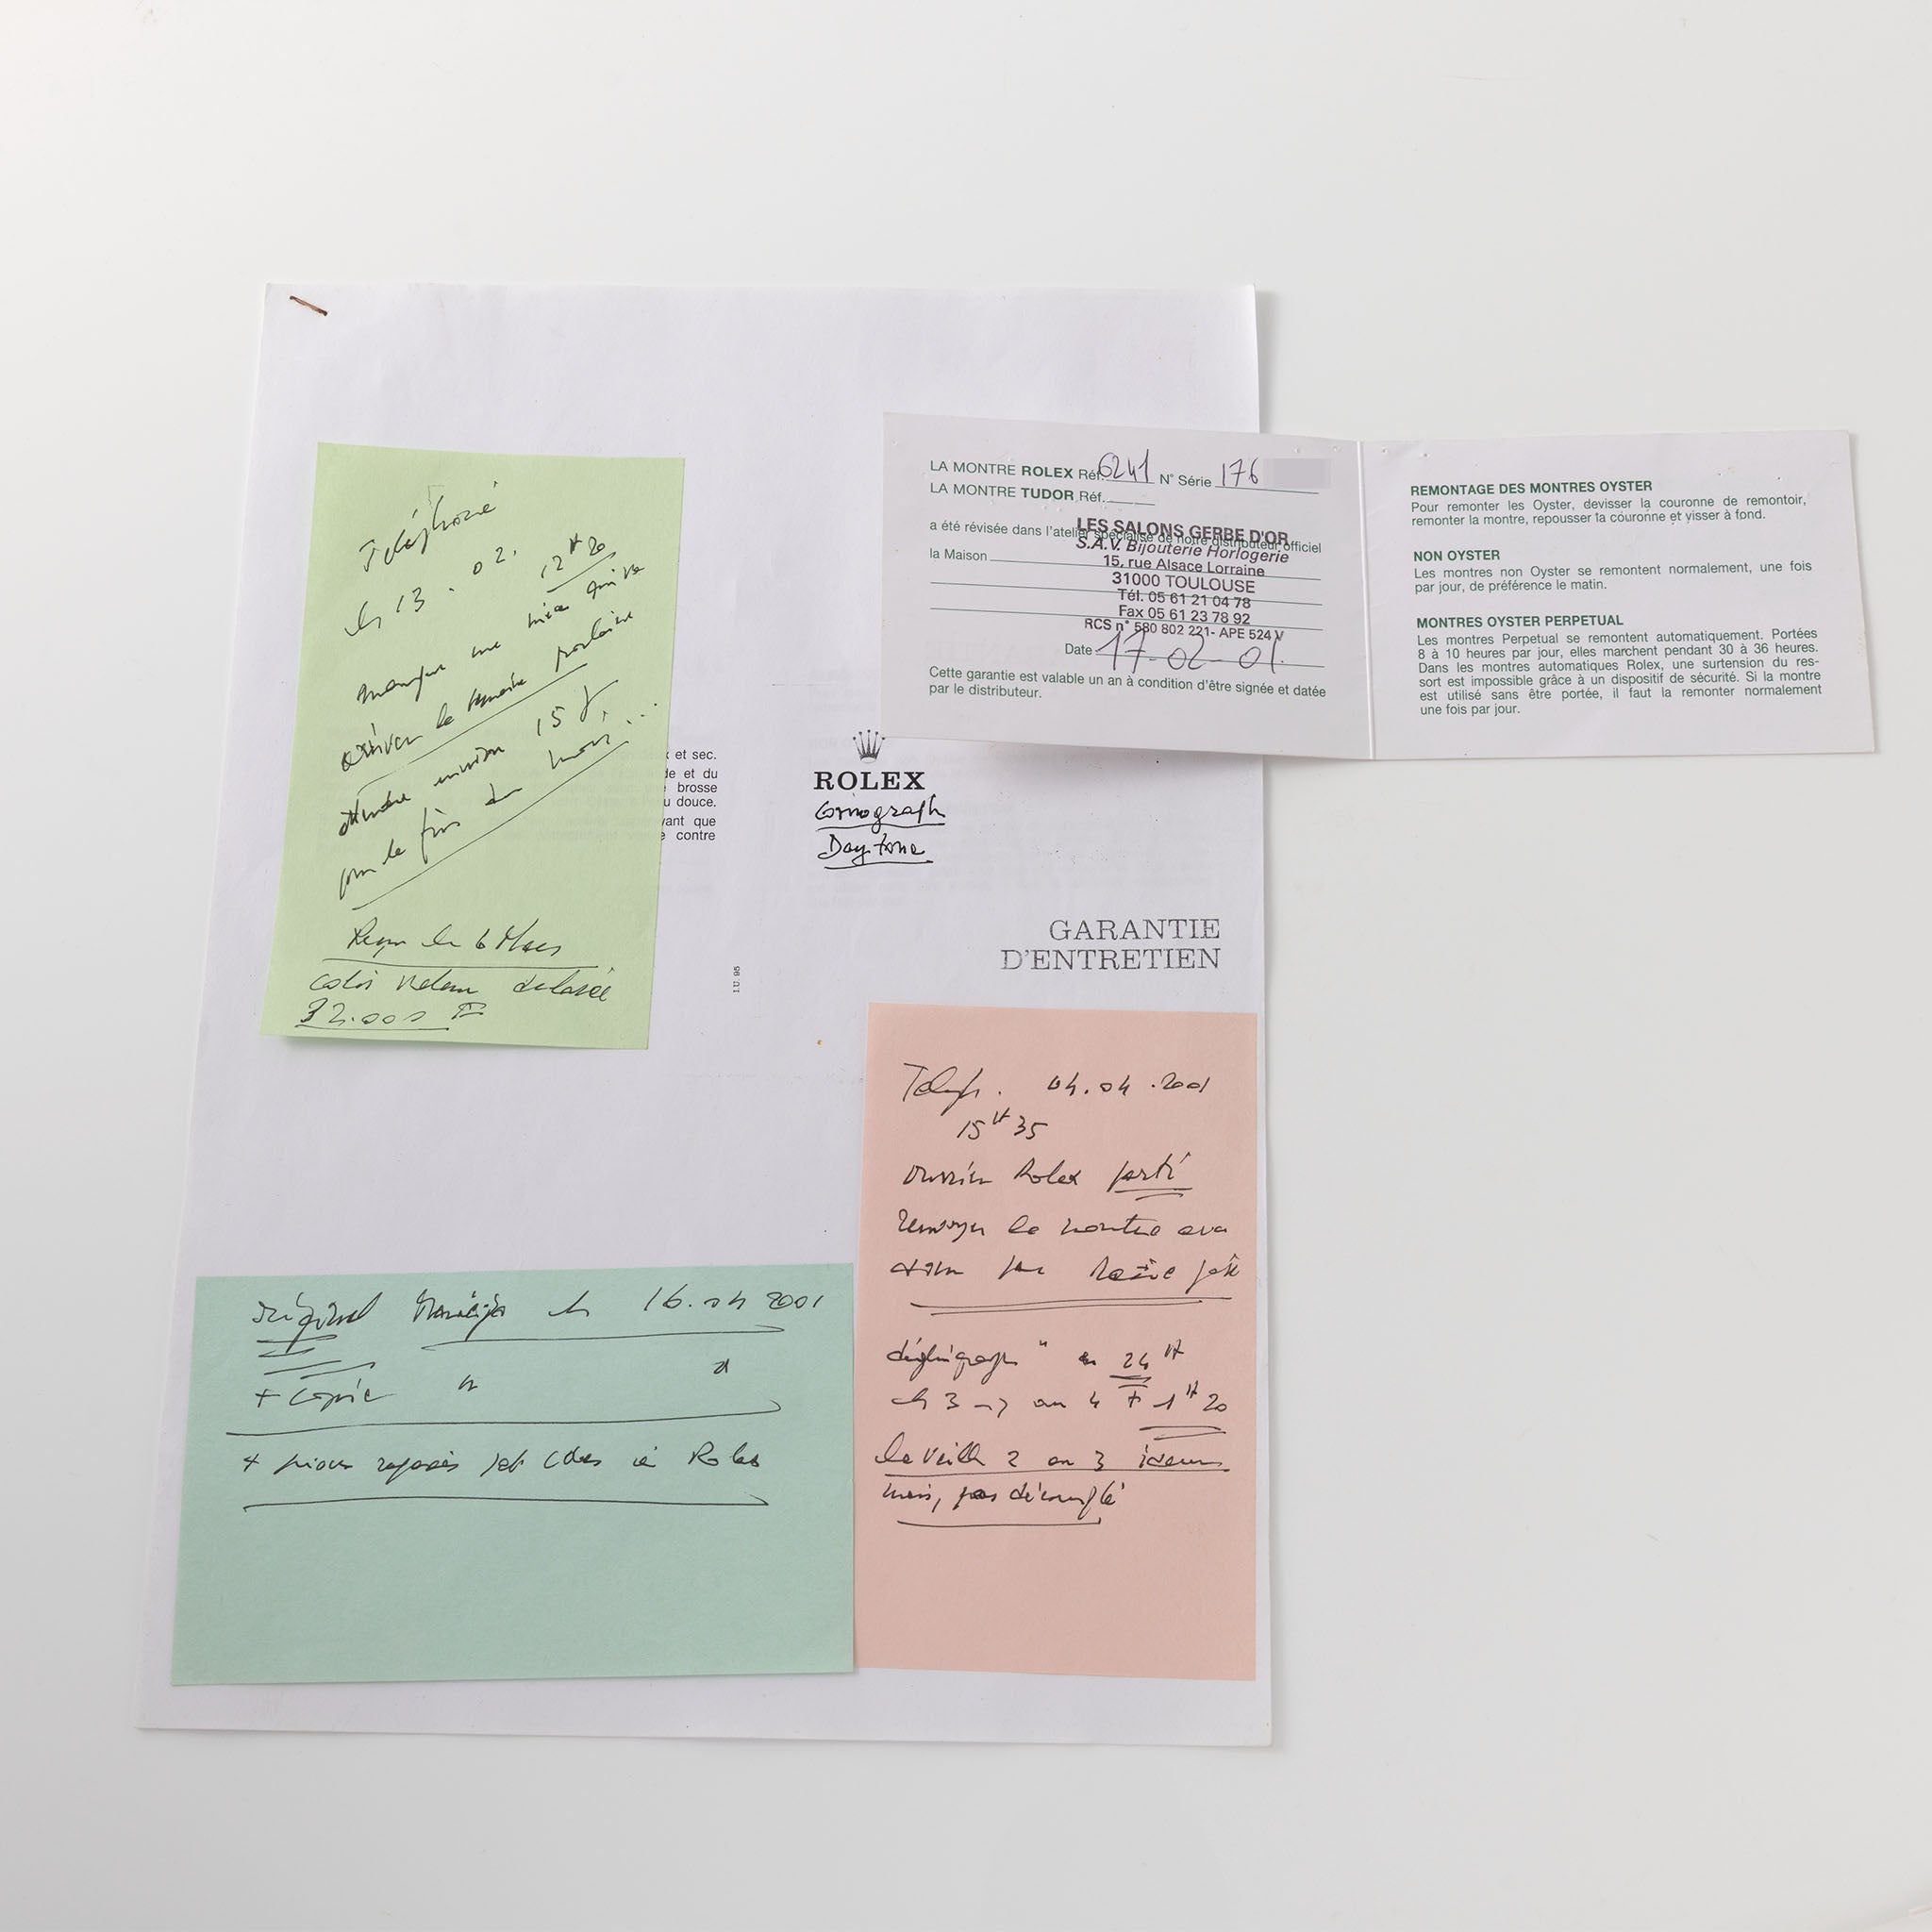 Téléphoné
le 13.02. 12H20
manque une pièce
arriver la semaine prochaine
attendre environ 15 J.
pour la fin du mois...
Reçu le 6 Mars
colis valeur
32.000 F
x et sec.
de et du
brosse
u douce.
vant que
e contre
I.U. 95
LA MONTRE ROLEX Réf. 6241 N° Série 176
LA MONTRE TUDOR Réf.
a été révisée dans l'atelier spécialisé de notre distributeur officiel
la Maison
LES SALONS GERBE D'OR
S.A.V. Bijouterie Horlogerie
15, rue Alsace Lorraine
31000 TOULOUSE
Tél. 05 61 21 04 78
Fax 05 61 23 78 92
RCS n° 580 802 221- APE 524 V
Date 17-02-01.
Cette garantie est valable un an à condition d'être signée et datée
par le distributeur.
REMONTAGE DES MONTRES OYSTER
Pour remonter les Oyster, devisser la couronne de remontoir,
remonter la montre, repousser la couronne et visser à fond.
NON OYSTER
Les montres non Oyster se remontent normalement, une fois
par jour, de préférence le matin.
MONTRES OYSTER PERPETUAL
Les montres Perpetual se remontent automatiquement. Portées
8 à 10 heures par jour, elles marchent pendant 30 à 36 heures.
Dans les montres automatiques Rolex, une surtension du res-
sort est impossible grâce à un dispositif de sécurité. Si la montre
est utilisé sans être portée, il faut la remonter normalement
une fois par jour.
ROLEX
Daytona
GARANTIE
D'ENTRETIEN
Teleph. 04.04.2001
15H35
Rolex parti
Renvoyer la montre
par
24H
le 3 au 4 + 1H20
la veille 2 au 3 idem
mais, pas décompté
original le 16.04 2001
+ copie " "
+ à Rolex